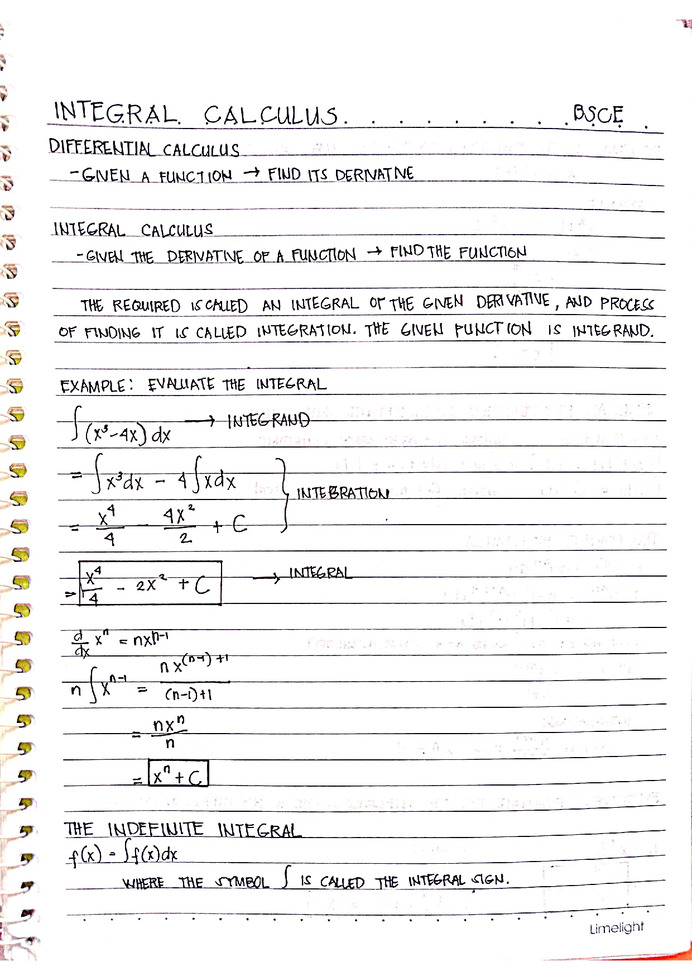 INTEGRAL CALCULUS. . . . . . . . . BSCE .
DIFFERENTIAL CALCULUS
- GIVEN A FUNCTION → FIND ITS DERIVATIVE
INTEGRAL CALCULUS
- GIVEN THE DERIVATIVE OF A FUNCTION → FIND THE FUNCTION
THE REQUIRED IS CALLED AN INTEGRAL OF THE GIVEN DERIVATIVE, AND PROCESS
OF FINDING IT IS CALLED INTEGRATION. THE GIVEN FUNCTION IS INTEGRAND.
EXAMPLE: EVALUATE THE INTEGRAL
∫(x³-4x) dx → INTEGRAND
= ∫x³dx - 4∫xdx
= x⁴/4 - 4x²/2 + C } INTEBRATION
= x⁴/4 - 2x² + C → INTEGRAL
d/dx xⁿ = nxⁿ⁻¹
n∫xⁿ⁻¹ = nx⁽ⁿ⁻¹⁾⁺¹/(n-1)+1
= nxⁿ/n
= xⁿ + C
THE INDEFINITE INTEGRAL
f(x) = ∫f(x)dx
WHERE THE SYMBOL ∫ IS CALLED THE INTEGRAL SIGN.
Limelight